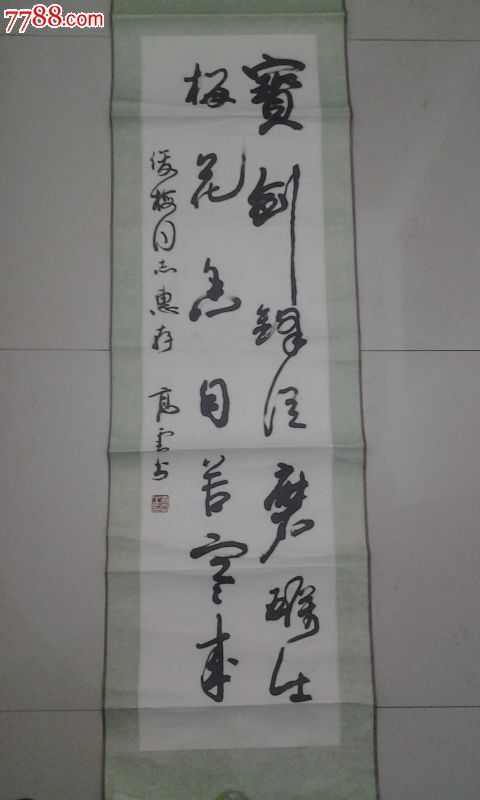 7788.com
寶劍鋒從磨礪出
梅花香自苦寒来
俊梅同志惠存
高云书